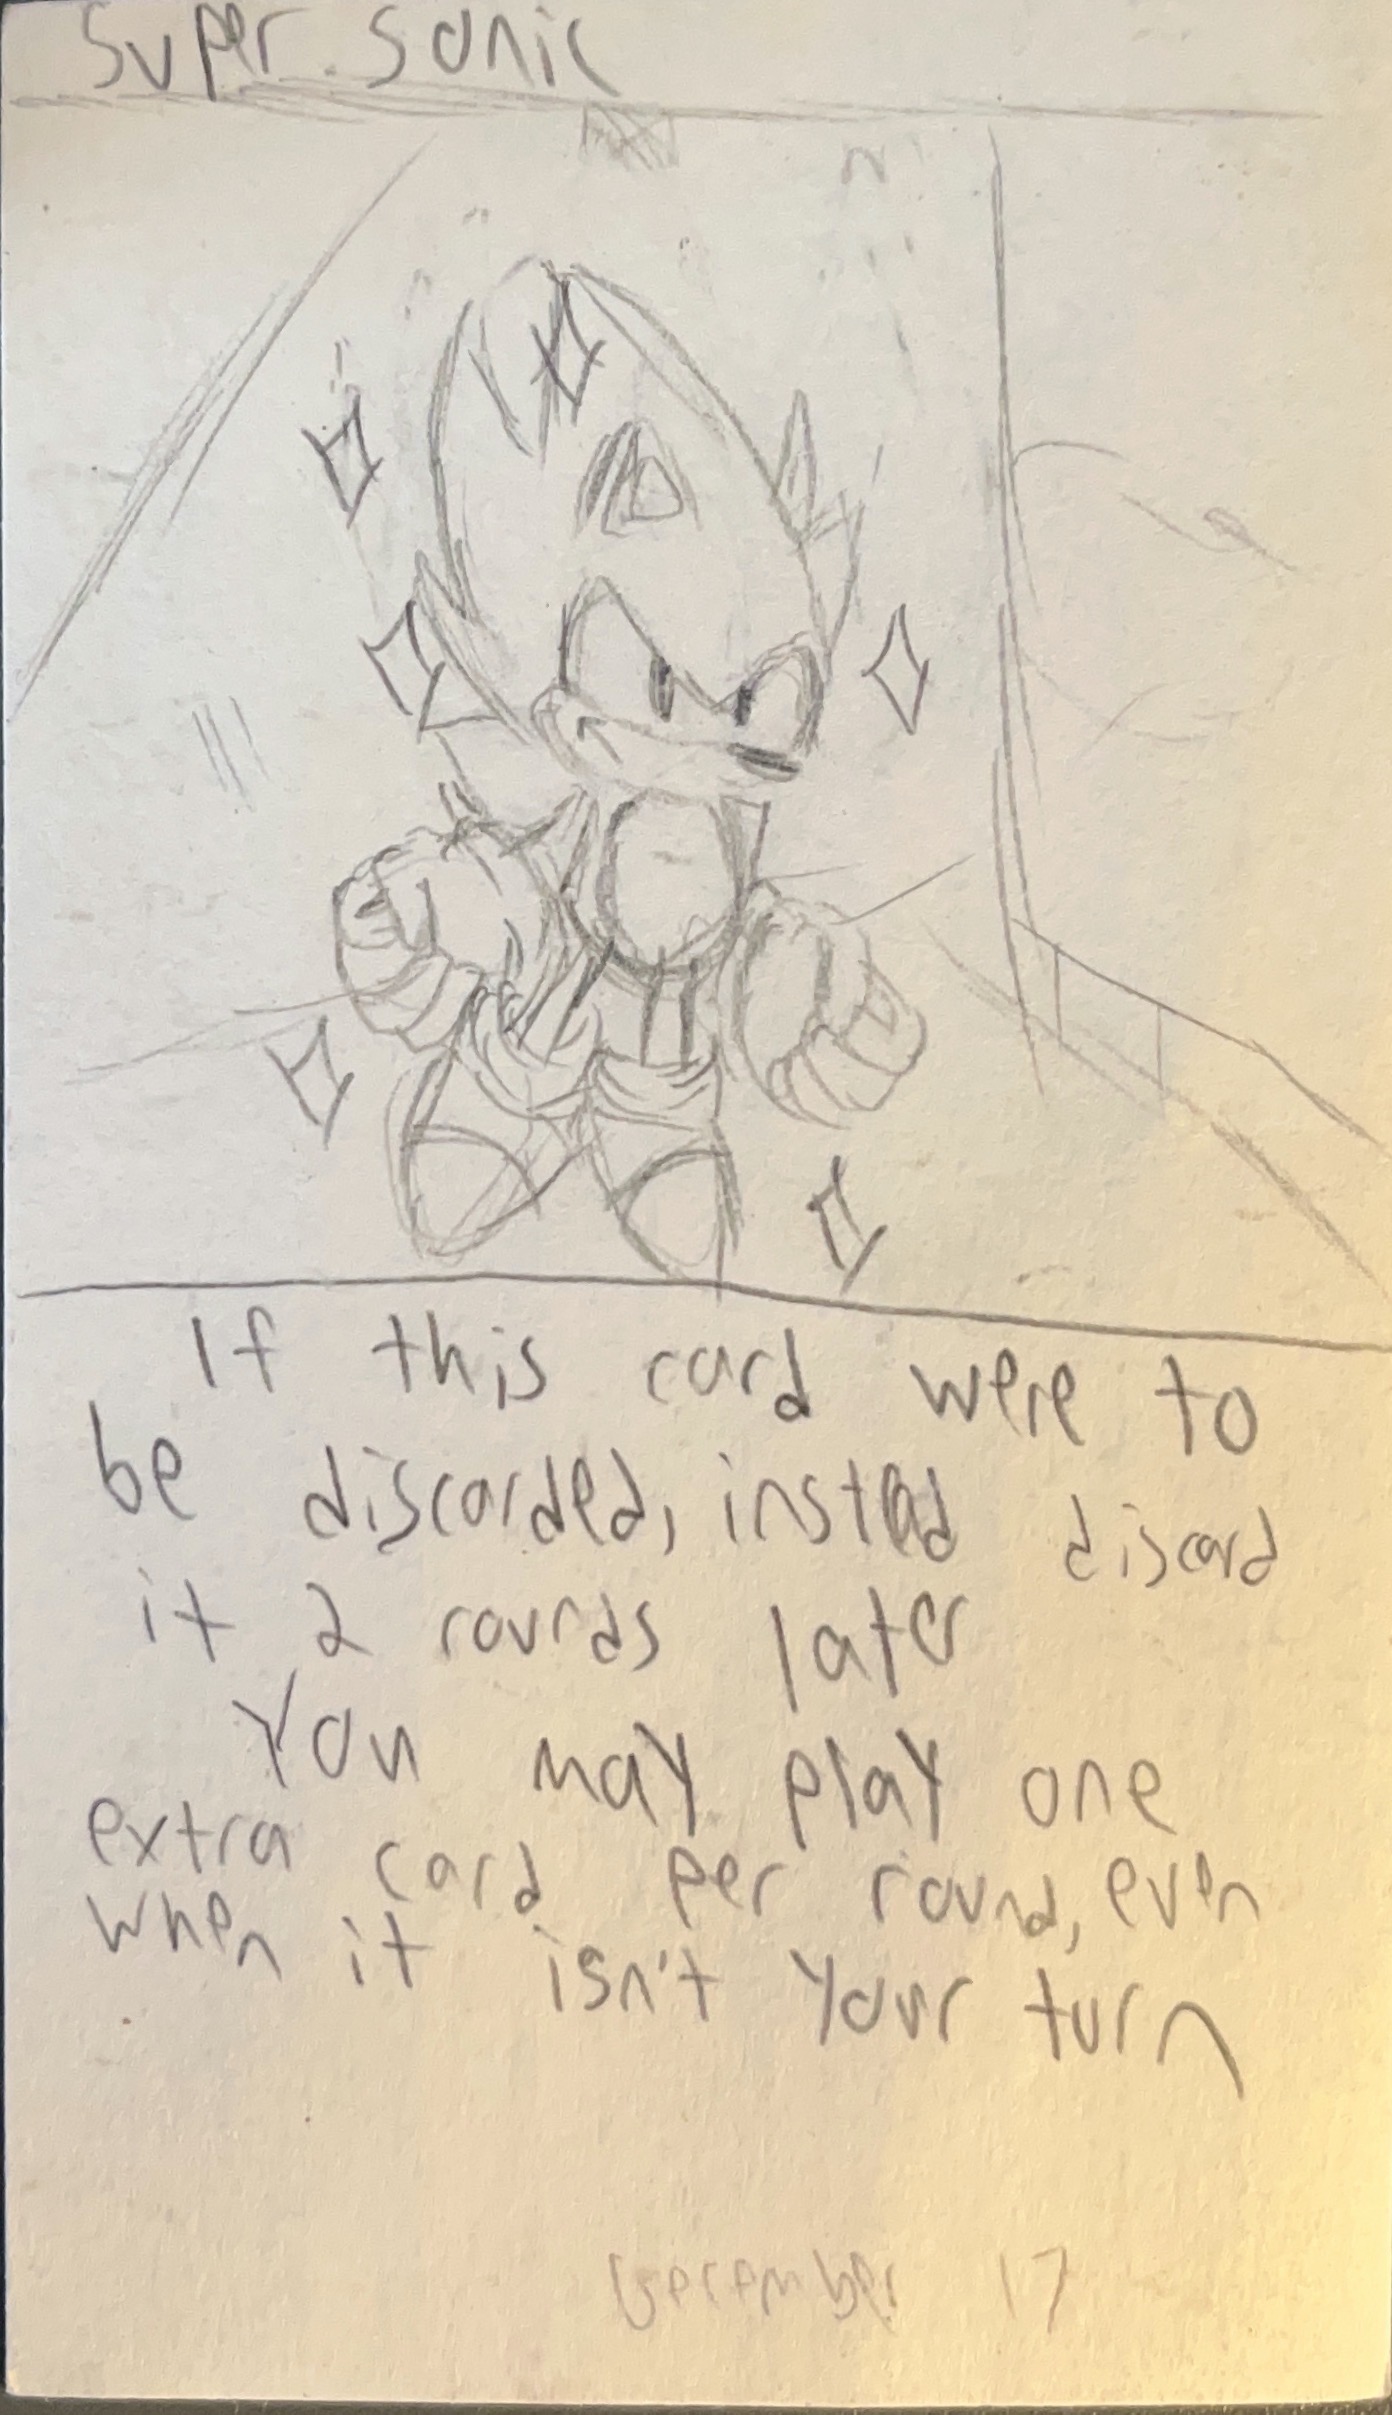 Super Sonic
If this card were to
be discarded, instead discard
it 2 rounds later
You may play one
extra card per round, even
when it isn't your turn
December 17